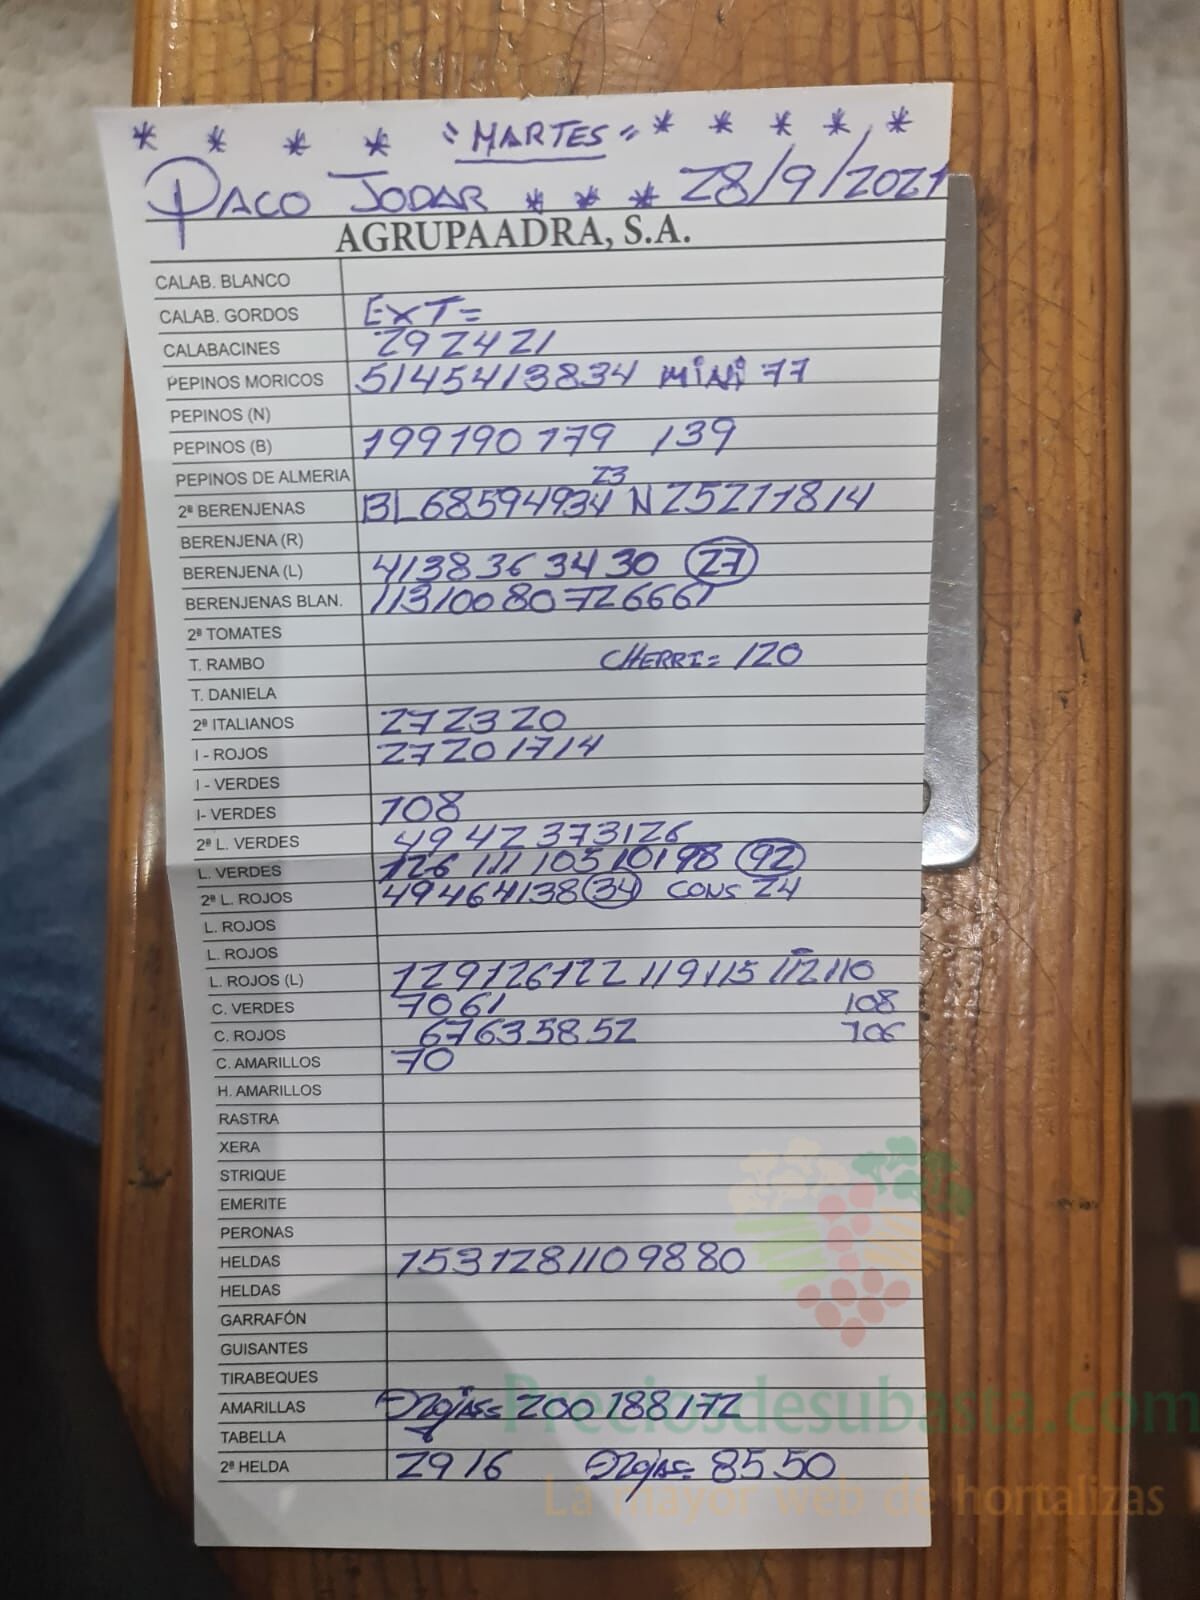 * * * * "MARTES" * * * * *
PACO JODAR * * * 28/9/2021
AGRUPAADRA, S.A.
CALAB. BLANCO
CALAB. GORDOS EXT=
CALABACINES 292421
PEPINOS MORICOS 5145413834 MINI 77
PEPINOS (N)
PEPINOS (B) 199190179 139
PEPINOS DE ALMERIA 23
2ª BERENJENAS BL68594934 N25211814
BERENJENA (R)
BERENJENA (L) 4138363430 27
BERENJENAS BLAN. 11310080726661
2ª TOMATES
T. RAMBO CHERRI= 120
T. DANIELA
2ª ITALIANOS 272320
I - ROJOS 27201714
I - VERDES
I- VERDES 108
2ª L. VERDES 4942373126
L. VERDES 126 111 105 101 98 92
2ª L. ROJOS 49464138 34 CONS 24
L. ROJOS
L. ROJOS
L. ROJOS (L) 129126122 119115 112110
C. VERDES 7061 108
C. ROJOS 67635852 106
C. AMARILLOS 70
H. AMARILLOS
RASTRA
XERA
STRIQUE
EMERITE
PERONAS
HELDAS 1531281109880
HELDAS
GARRAFÓN
GUISANTES
TIRABEQUES
AMARILLAS 200188172
TABELLA
2ª HELDA 2916 8550
Preciosdesubasta.com
La mayor web de hortalizas